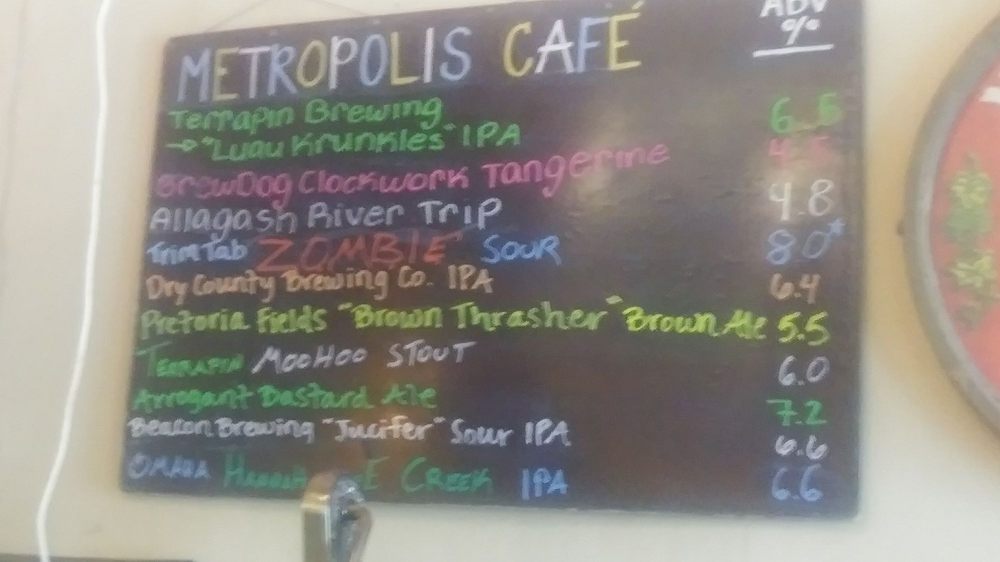 METROPOLIS CAFÉ ABV %
Terrapin Brewing
→ "Luau Krunkles" IPA 6.5
BrewDog Clockwork Tangerine 4.5
Allagash River Trip 4.8
TrimTab ZOMBIE Sour 8.0*
Dry County Brewing Co. IPA 6.4
Pretoria Fields "Brown Thrasher" Brown Ale 5.5
Terrapin MooHoo Stout 6.0
Arrogant Bastard Ale 7.2
Beacon Brewing "Jucifer" Sour IPA 6.6
Omaha Creek IPA 6.6